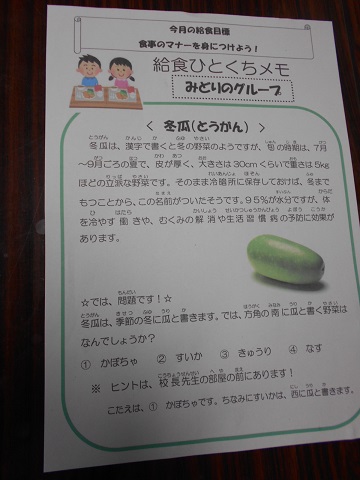 今月の給食目標
食事のマナーを身につけよう！
給食ひとくちメモ
みどりのグループ
＜ 冬瓜(とうがん) ＞
冬瓜は、漢字で書くと冬の野菜のようですが、旬の時期は、7月
～9月ごろの夏で、皮が厚く、大きさは30cmくらいで重さは5kg
ほどの立派な野菜です。そのまま冷暗所に保存しておけば、冬まで
もつことから、この名前がついたそうです。95%が水分ですが、体
を冷やす働きや、むくみの解消や生活習慣病の予防に効果が
あります。
☆では、問題です！☆
冬瓜は、季節の冬に瓜と書きます。では、方角の南に瓜と書く野菜は
なんでしょうか？
① かぼちゃ ② すいか ③ きゅうり ④ なす
※ ヒントは、校長先生の部屋の前にあります！
こたえは、① かぼちゃです。ちなみにすいかは、西に瓜と書きます。